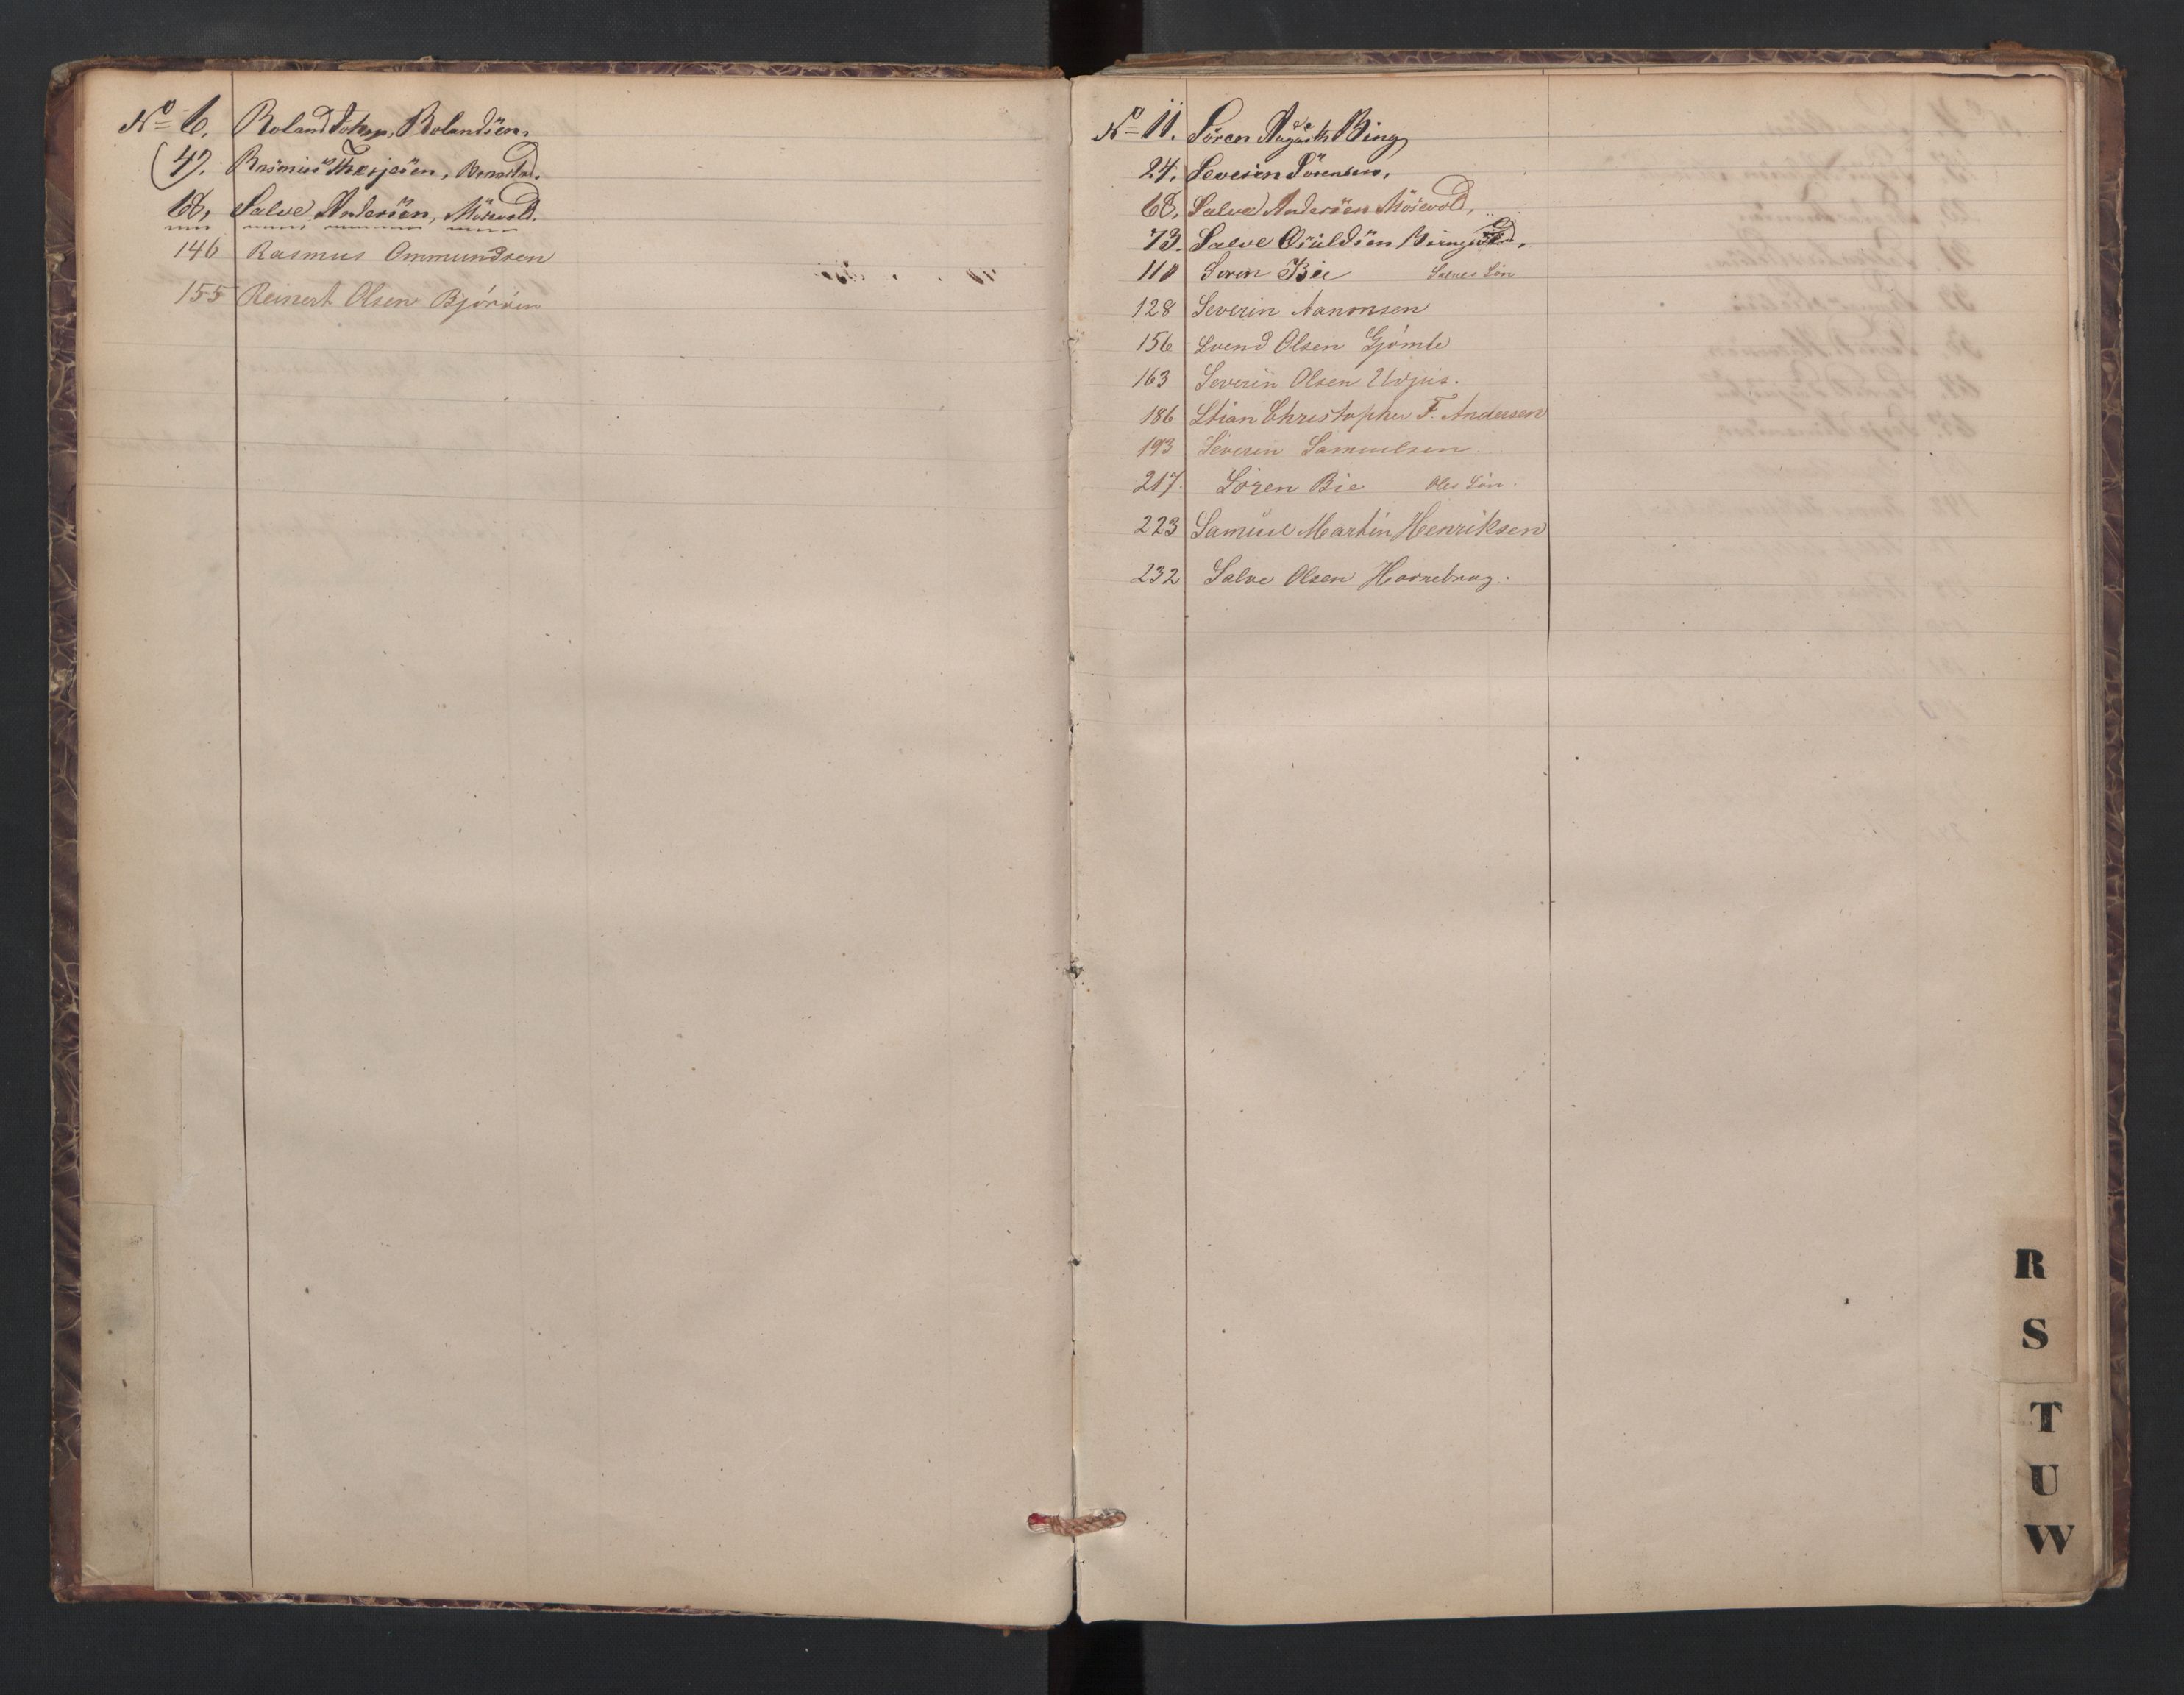 No 6. Roland Johan Rolandsen.
(47. Rasmus Therjesen,
68, Salve Andersen, Mösevold.
146 Rasmus Ommundsen
155 Reinert Olsen Björnsen
No 11. Sören August Bing
24, Severin Sörensen,
68, Salve Andersen Mösevold,
73. Salve Osuldsen
110 Sören Bie Salves Sön
128 Severin Aanonsen
156 Svend Olsen Gjömle
163 Severin Olsen Udjus.
186 Stian Christopher F. Andersen
193 Severin Samuelsen
217. Sören Bie Oles Sön.
223 Samuel Martin Henriksen
232 Salve Olsen
R
S
T
U
W